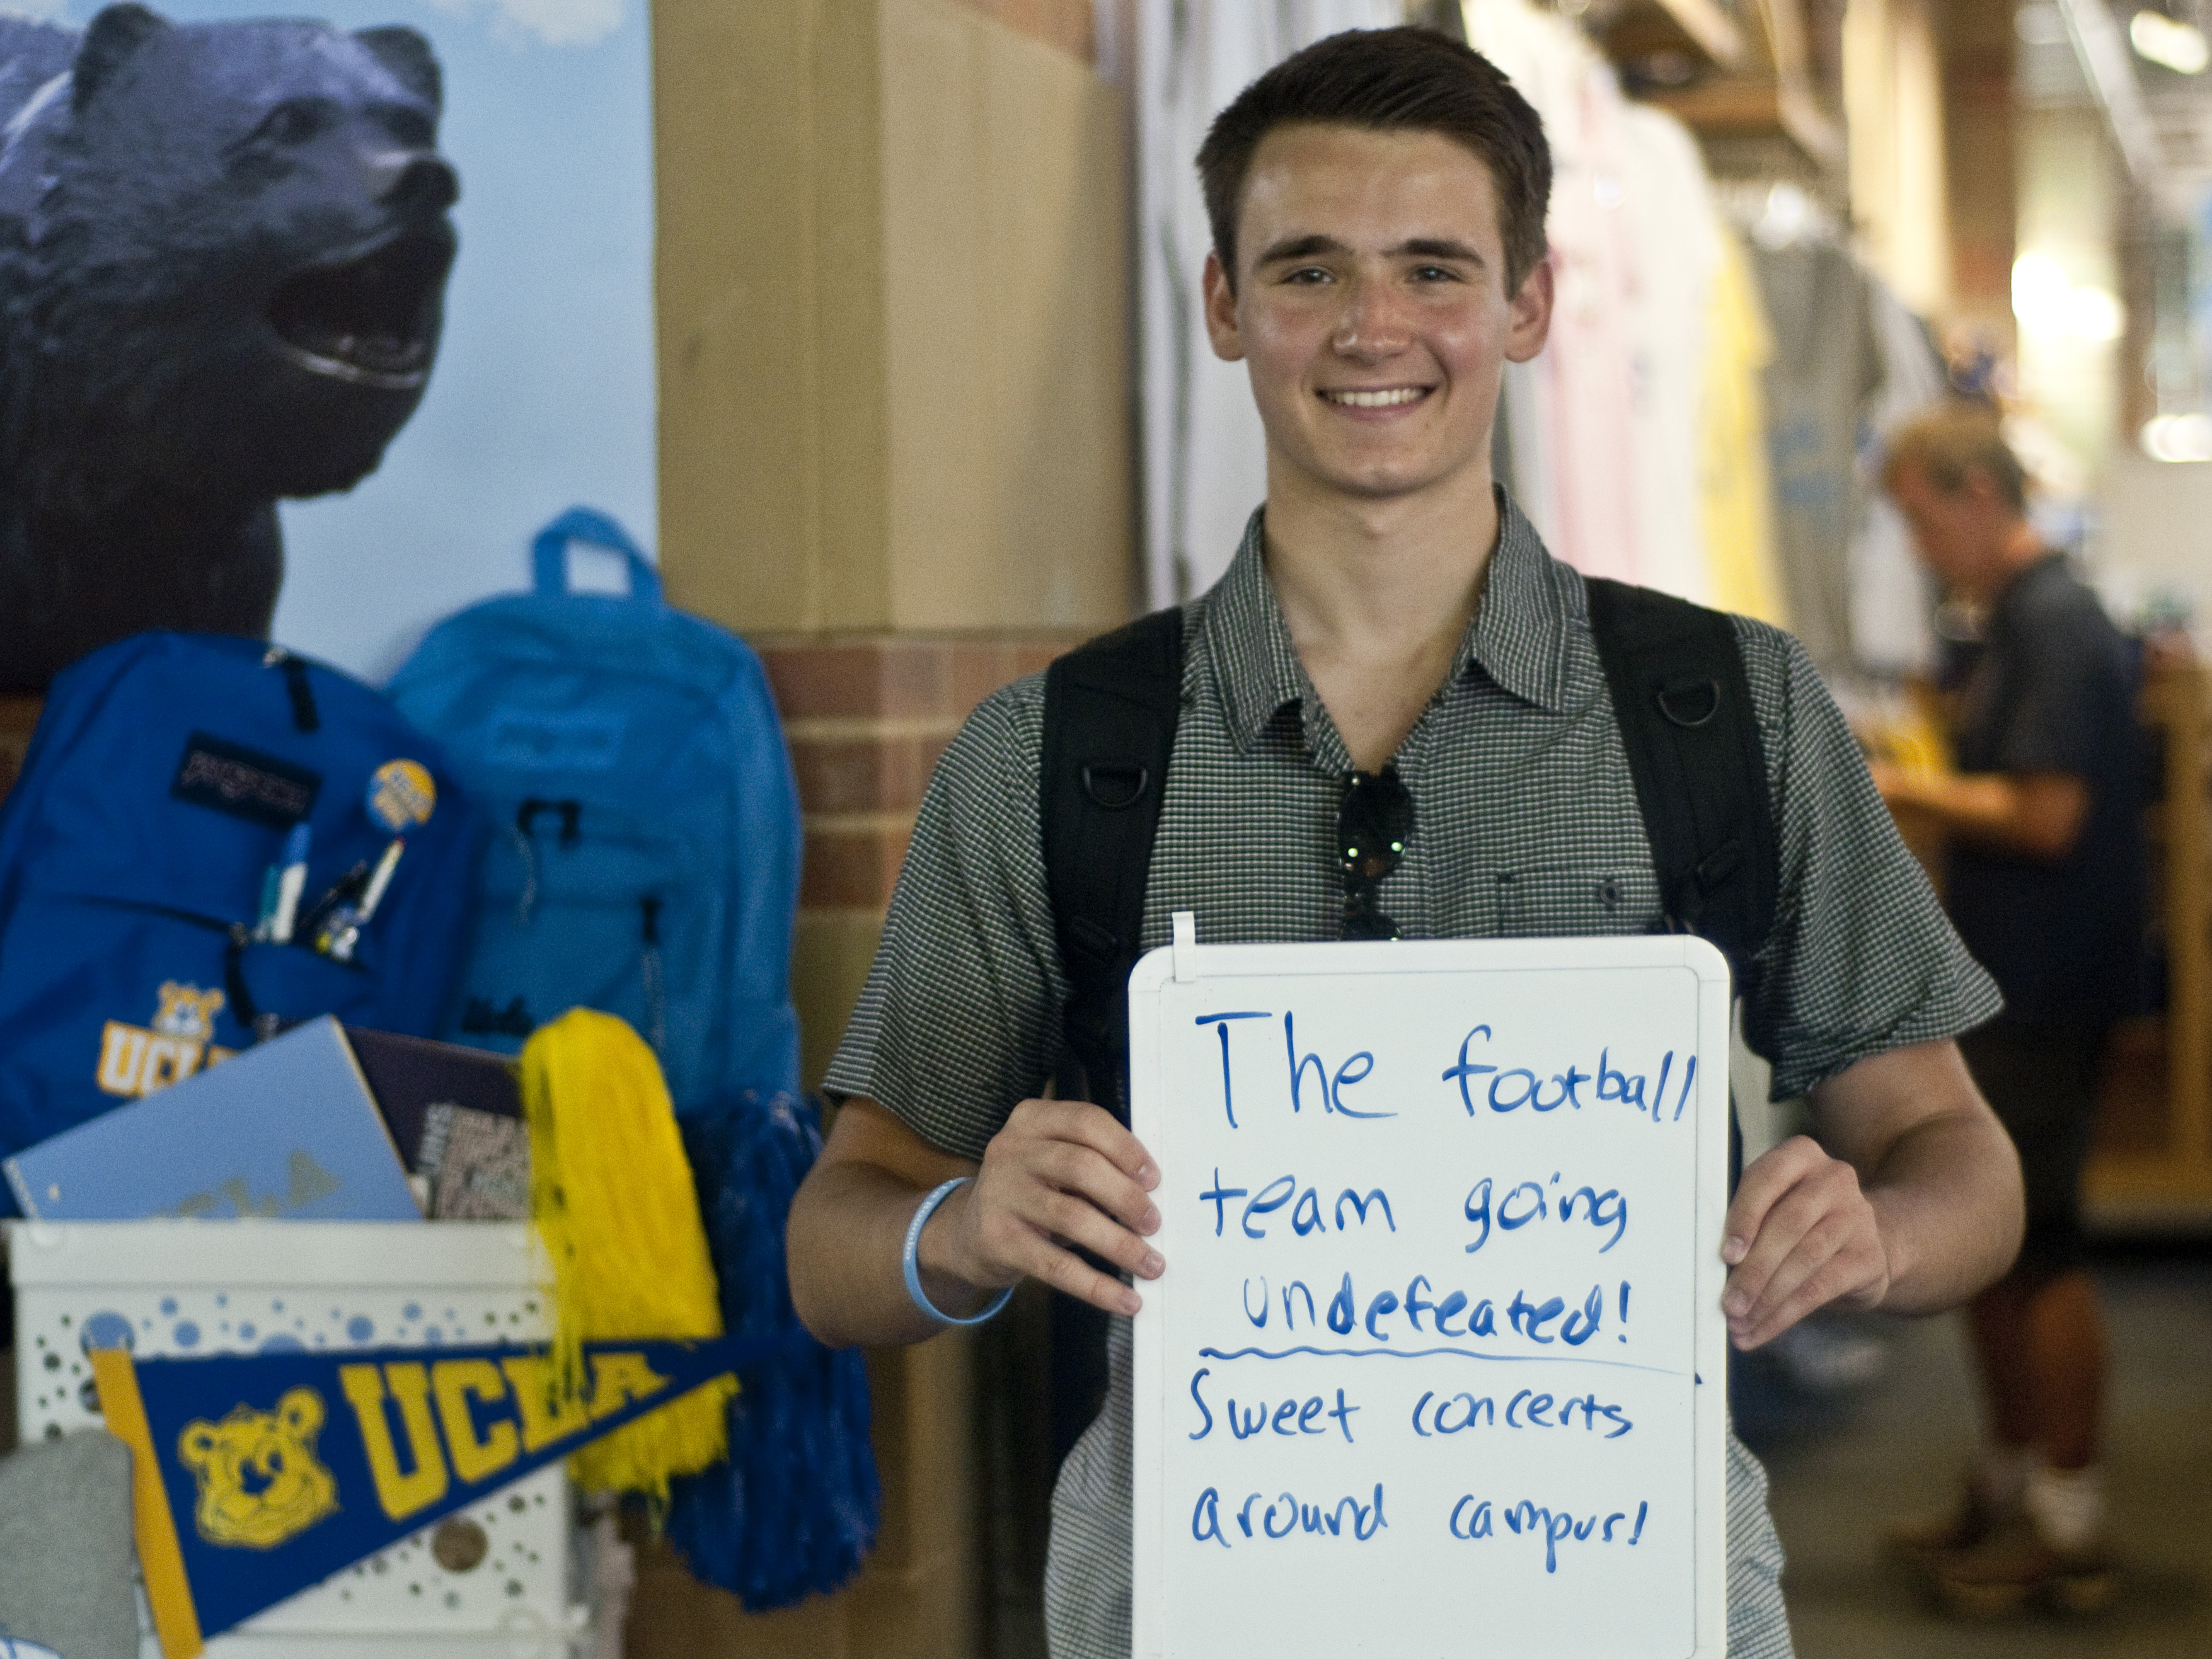 The football
team going
undefeated!
Sweet concerts
around campus!
UCLA
JANSPORT
UCLA
UCLA